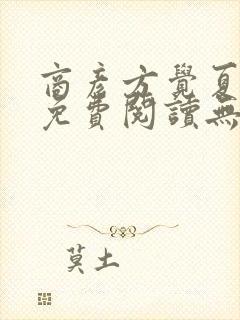 商彥方覺夏
免費閱讀無
莫土